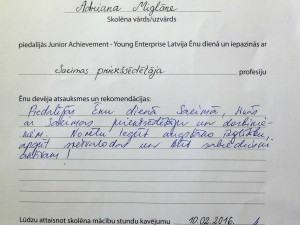 Adriana Miglāne
Skolēna vārds/uzvārds
piedalījās Junior Achievement - Young Enterprise Latvija Ēnu dienā un iepazinās ar
Saeimas priekšsēdētāja profesiju
Ēnu devēja atsauksmes un rekomendācijas:
Piedalījās Ēnu dienā Saeimā,
ar Saeimas priekšsēdētāju un darbinie-
kiem. Novēlu iegūt augstāko izglītību,
apgūt svešvalodas un būt sabiedriski
aktīvai!
Lūdzu attaisnot skolēna mācību stundu kavējumu 10.02.2016.